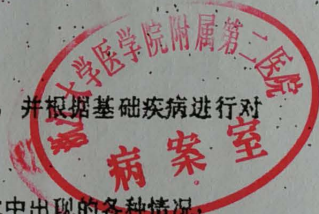 大学医学院附属第二医院
病案室
并根据基础疾病进行对
中出现的各种情况;